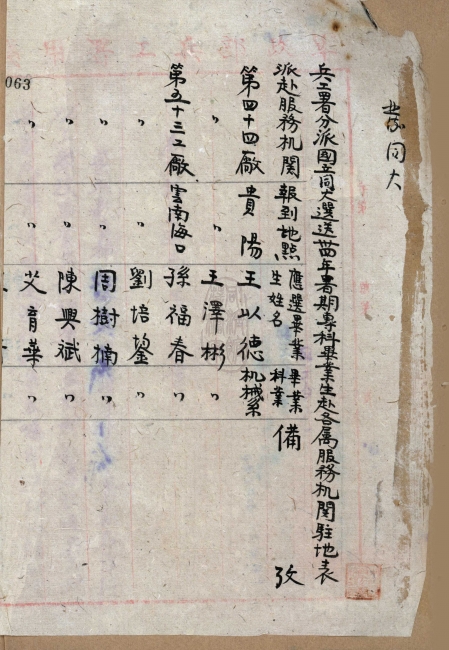 同大
兵工署分派國立同大選送卅四年暑期專科畢業生赴各属服務机関駐地表
派赴服務机関 報到地點 應選畢業生姓名 畢業科業 備攷
第四十四廠 貴陽 王以德 机械系
〃 〃 王澤彬 〃
第五十三工廠 雲南海口 孫福春 〃
〃 〃 劉培鋆 〃
〃 〃 周樹楠 〃
〃 〃 陳興斌 〃
〃 〃 艾育華 〃
063